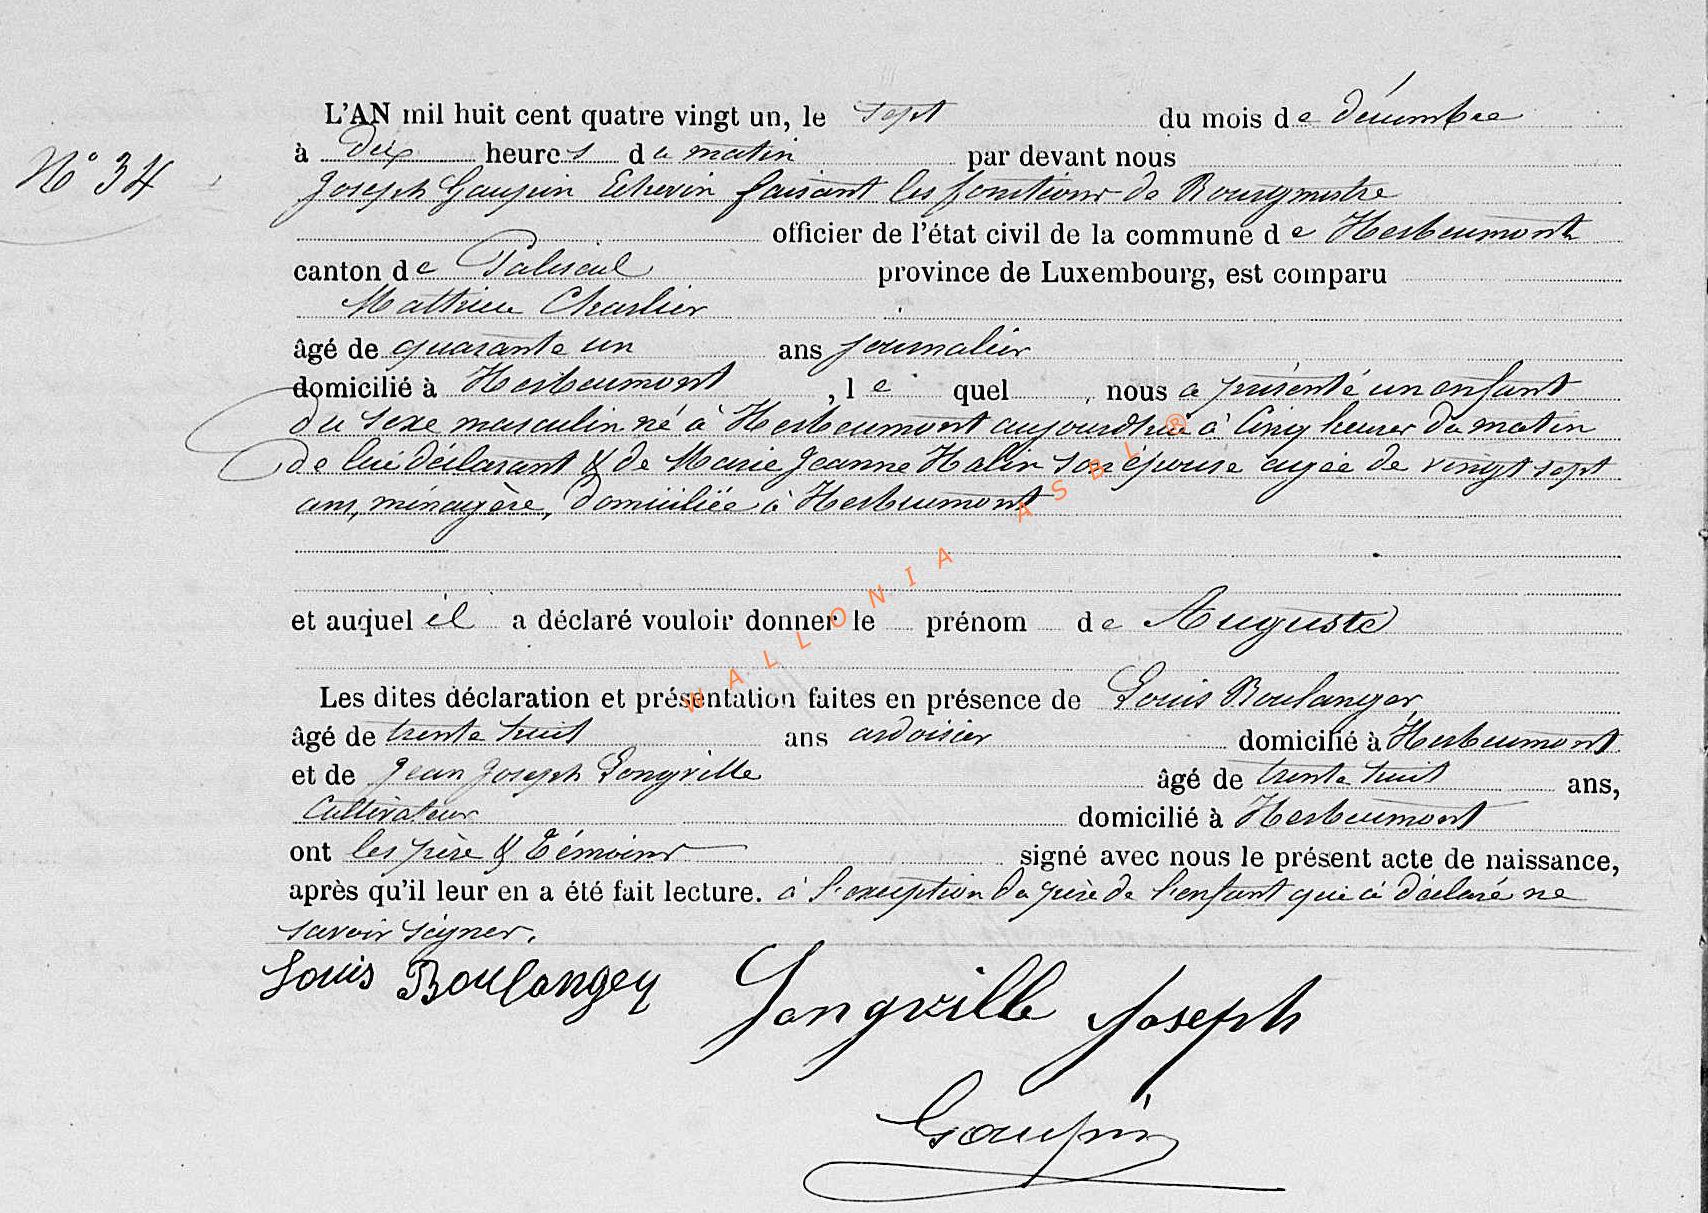 L'AN mil huit cent quatre vingt un, le sept du mois de décembre
N° 34
à dix heures du matin par devant nous
Joseph Goupin Echevin faisant les fonctions de Bourgmestre
officier de l'état civil de la commune de Herbeumont
canton de Paliseul province de Luxembourg, est comparu
Mathieu Charlier
âgé de quarante un ans journalier
domicilié à Herbeumont, lequel, nous a présenté un enfant
du sexe masculin né à Herbeumont aujourd'hui à cinq heures du matin
de lui déclarant & de Marie Jeanne Halin son épouse agée de vingt sept
ans, ménagère, domiciliée à Herbeumont
et auquel il a déclaré vouloir donner le prénom de Auguste
Les dites déclaration et présentation faites en présence de Louis Boulanger
âgé de trente huit ans ardoisier domicilié à Herbeumont
et de Jean Joseph Longville âgé de trente huit ans,
Cultivateur domicilié à Herbeumont
ont les père & témoins signé avec nous le présent acte de naissance,
après qu'il leur en a été fait lecture. à l'exception du père de l'enfant qui à déclaré ne
savoir signer.
Louis Boulanger Longville Joseph
Goupin
WALLONIA ASBL ®